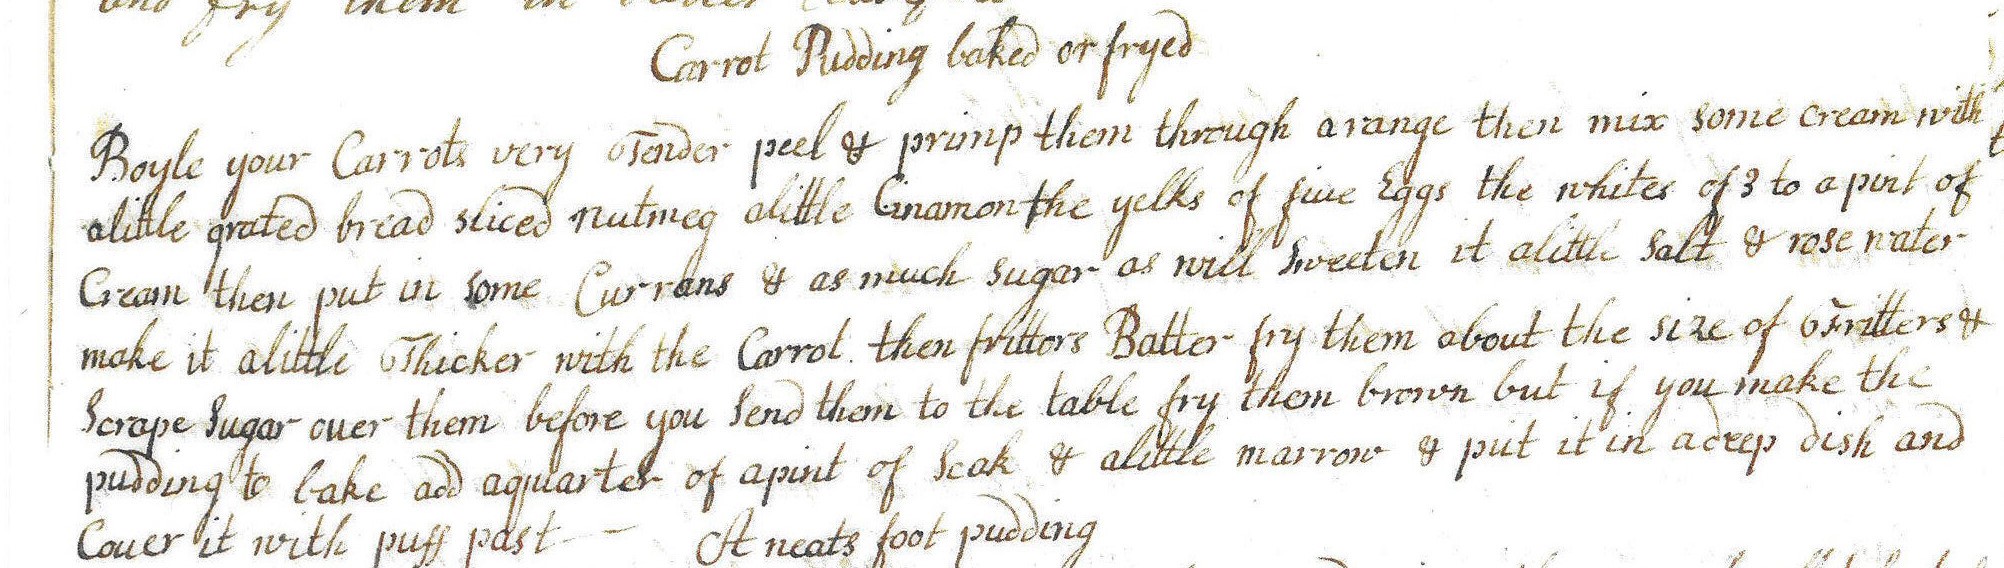 and fry them in
Carrot Pudding baked or fryed
Boyle your Carrots very Tender peel & primp them through arange then mix some cream with
alittle grated bread sliced nutmeg alittle Cinamon the yelks of five Eggs the whites of 3 to a pint of
Cream then put in some Currans & as much sugar as will Sweeten it alittle Salt & rose water
make it alittle Thicker with the Carrot. then frittors Batter fry them about the size of Fritters &
Scrape Sugar over them before you Send them to the table fry them brown but if you make the
pudding to bake add aquarter of apint of Seak & alittle marrow & put it in adeep dish and
Couer it with puff past —    A neats foot pudding